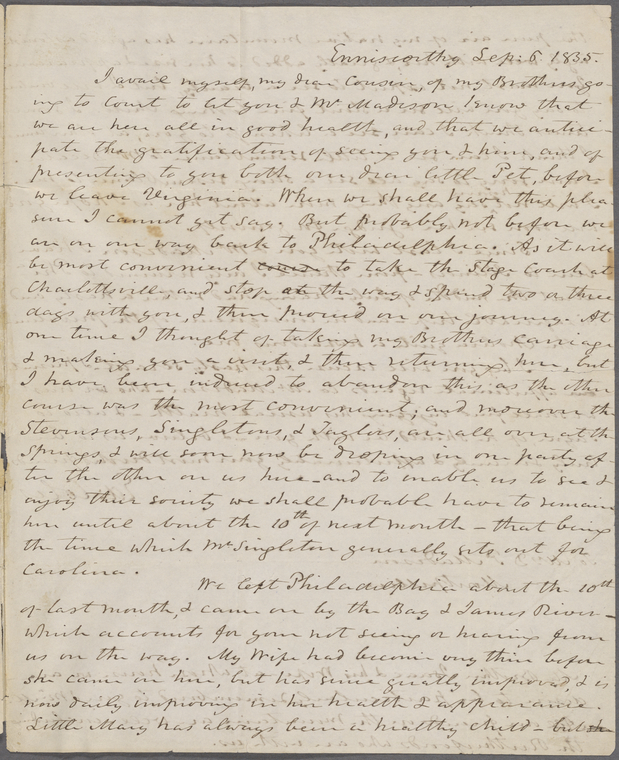 Enniscorthy Sep: 6 1835.
I avail myself, my dear Cousin, of my Brothers go-
ing to Court to let you & Mr Madison know that
we are here all in good health, and that we antici-
pate the gratification of seeing you & him, and of
presenting to you both our dear little Pet, before
we leave Virginia. When we shall have this plea
sure I cannot yet say. But probably not before we
are on our way back to Philadelphia. As it will
be most convenient to take the Stage Coach at
Charlottsville, and stop at the way & spend two or three
days with you, & then proceed on our journey. At
one time I thought of taking my Brothers Carriage
& making you a visit, & then returning here, but
I have been induced to abandon this as the other
course was the most convenient; and moreover the
Stevensons, Singletons, & Taylors, are all over at the
Springs, & will soon now be droping in one party af-
ter the other on us here and to enable us to see &
enjoy their society we shall probable have to remain
here until about the 10th of next month - that being
the time which Mr Singleton generally sets out for
Carolina.
We left Philadelphia about the 10th
of last month, & came on by the Bay & James River
which accounts for your not seeing or hearing from
us on the way. My Wife had become very thin before
she came on here, but has since greatly improved, & is
now daily improving in her health & appearance.
Little Mary has always been a healthy child - but she